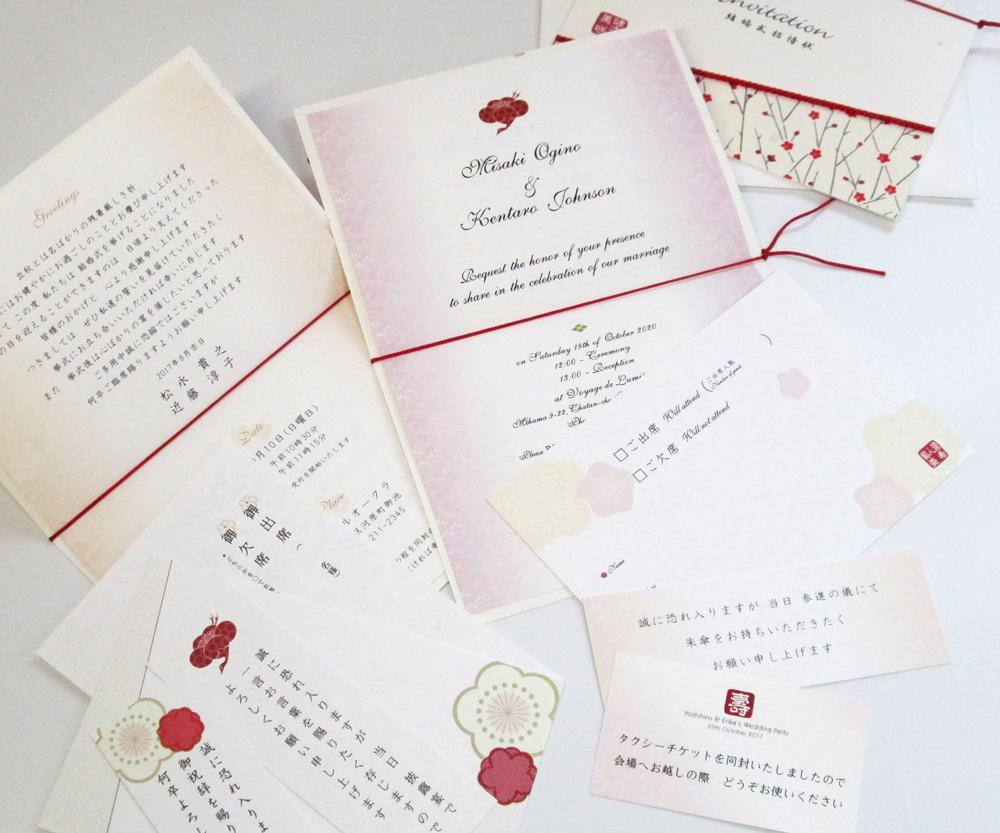 Invitation
結婚式招待状
Misaki Ogino
&
Kentaro Johnson
Request the honor of your presence
to share in the celebration of our marriage
on Saturday 18th of October 2020
12:00 - Ceremony
13:00 - Reception
at Voyage de Lumi
Mihama 9-22, Chatan-cho
Greetings
立秋とは名ばかりの残暑厳しき折
にはお健やかにお過ごしのこととお慶び申し上げます
て この度 私たちは 結婚式を挙げることになりました
の日を迎えることができますのは 日頃より支えてくださった
皆様のおかげと 心より感謝申し上げます
つきましては ぜひ私達の誓いを見届けていただきたく
挙式にお立ち会いいただければ幸いに存じます
また 挙式後は心ばかりの宴を催したいと思っております
ご多用中誠に恐縮ではございますが
何卒 ご臨席賜りますようお願い申し上げます
2017年8月吉日
松永 貴之
近藤 淳子
Date
10日(日曜日)
午前10時30分
午前11時15分
受付を開始いたします
Place
ルオークラ
河原町御池
211-2345
御出席
御欠席
□ご出席 Will attend (ご出席人数 Number of guests )
□ご欠席 Will not attend
Name
誠に恐れ入りますが 当日 参進の儀にて
朱傘をお持ちいただきたく
お願い申し上げます
壽
Yoshihiro & Erika's Wedding Party
29th October 2017
タクシーチケットを同封いたしましたので
会場へお越しの際 どうぞお使いください
誠に恐れ入りますが 当日 披露宴で
一言お言葉を賜りたく存じますので
よろしくお願い申し上げます
誠に恐れ入りま
御祝辞を賜り
何卒よろし